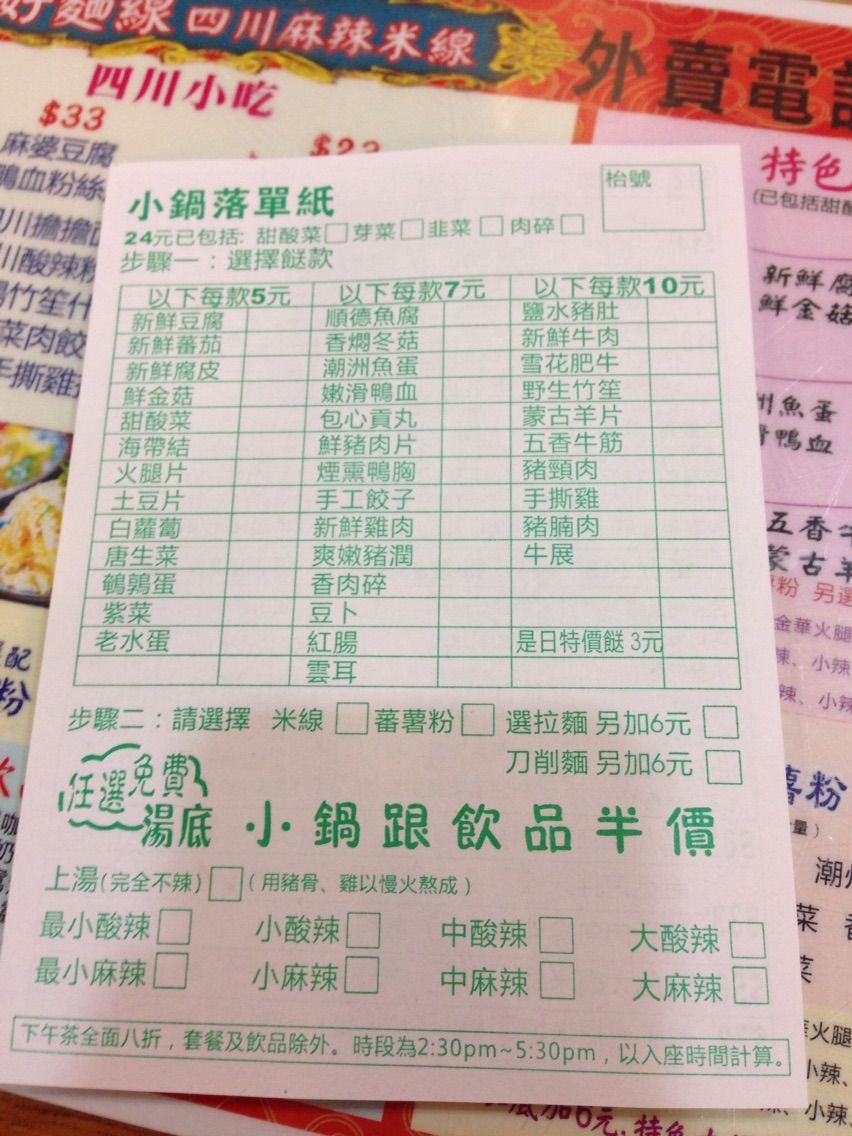 好麵線 四川麻辣米線
外賣電話
四川小吃
$33
$23
麻婆豆腐
鴨血粉絲
四川擔擔面
川酸辣粉
菜肉餃
手撕雞
特色
(已包括甜酸
新鮮腐
鮮金菇
州魚蛋
骨鴨血
五香牛
蒙古羊
粉 另選
金華火腿
辣、小辣
辣、小辣
薯粉
潮州
菜
菜
火腿
小辣、
、小辣
配
粉
小鍋落單紙
枱號
24元已包括: 甜酸菜□芽菜□韭菜□肉碎□
步驟一：選擇餸款
以下每款5元 以下每款7元 以下每款10元
新鮮豆腐 順德魚腐 鹽水豬肚
新鮮蕃茄 香燜冬菇 新鮮牛肉
新鮮腐皮 潮洲魚蛋 雪花肥牛
鮮金菇 嫩滑鴨血 野生竹笙
甜酸菜 包心貢丸 蒙古羊片
海帶結 鮮豬肉片 五香牛筋
火腿片 煙熏鴨胸 豬頸肉
土豆片 手工餃子 手撕雞
白蘿蔔 新鮮雞肉 豬腩肉
唐生菜 爽嫩豬潤 牛展
鵪鶉蛋 香肉碎
紫菜 豆卜
老水蛋 紅腸 是日特價餸 3元
雲耳
步驟二：請選擇 米線 □蕃薯粉□ 選拉麵 另加6元 □
刀削麵 另加6元 □
任選免費
湯底 小鍋跟飲品半價
上湯(完全不辣)□(用豬骨、雞以慢火熬成)
最小酸辣□ 小酸辣□ 中酸辣□ 大酸辣□
最小麻辣□ 小麻辣□ 中麻辣□ 大麻辣□
下午茶全面八折，套餐及飲品除外。時段為2:30pm~5:30pm，以入座時間計算。
底加6元,特色